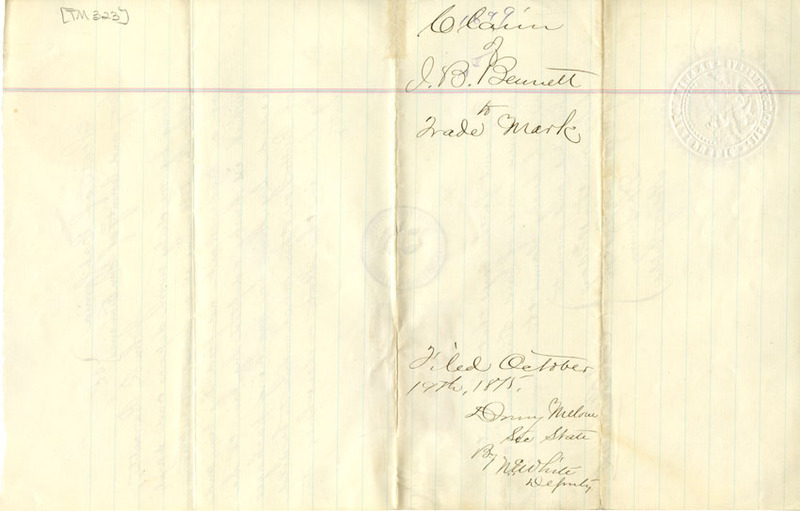 [TM 323]
Claim
of
J. B. Bennett
to
Trade Mark
Filed October
19th, 1875.
Drury Melone
Sec State
By
White
Deputy